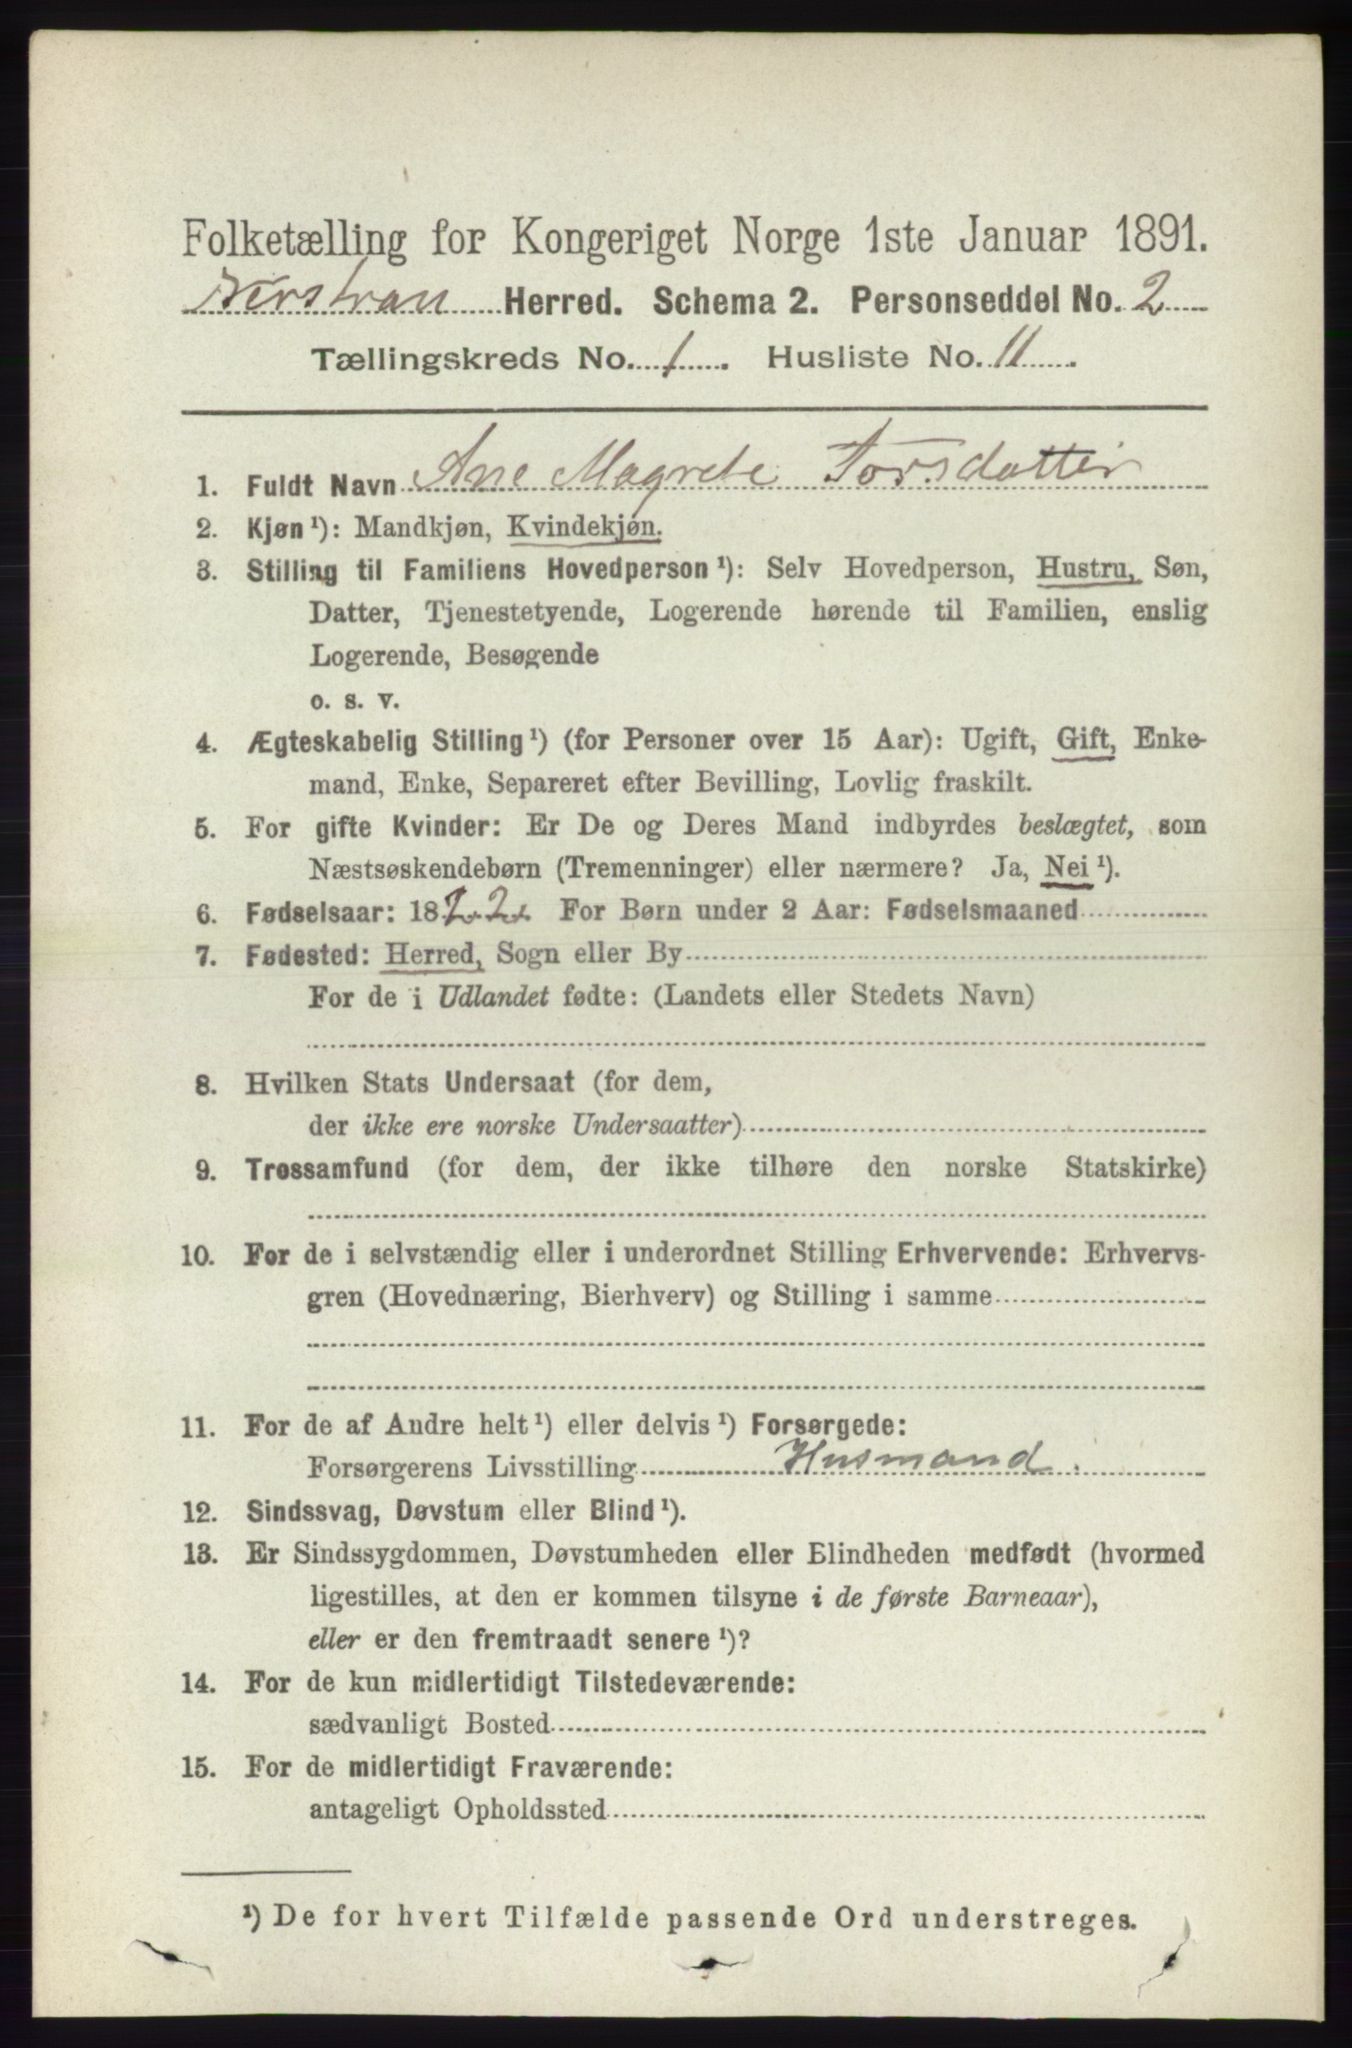 Folketælling for Kongeriget Norge 1ste Januar 1891.
Nerstran Herred. Schema 2. Personseddel No. 2
Tællingskreds No. 1. Husliste No. 11.
1. Fuldt Navn Ane Magrete Torsdatter
2. Kjøn ¹): Mandkjøn, Kvindekjøn.
3. Stilling til Familiens Hovedperson ¹): Selv Hovedperson, Hustru, Søn,
Datter, Tjenestetyende, Logerende hørende til Familien, enslig
Logerende, Besøgende
o. s. v.
4. Ægteskabelig Stilling ¹) (for Personer over 15 Aar): Ugift, Gift, Enke-
mand, Enke, Separeret efter Bevilling, Lovlig fraskilt.
5. For gifte Kvinder: Er De og Deres Mand indbyrdes beslægtet, som
Næstsøskendebørn (Tremenninger) eller nærmere? Ja, Nei ¹).
6. Fødselsaar: 1822. For Børn under 2 Aar: Fødselsmaaned
7. Fødested: Herred, Sogn eller By
For de i Udlandet fødte: (Landets eller Stedets Navn)
8. Hvilken Stats Undersaat (for dem,
der ikke ere norske Undersaatter)
9. Trossamfund (for dem, der ikke tilhøre den norske Statskirke)
10. For de i selvstændig eller i underordnet Stilling Erhvervende: Erhvervs-
gren (Hovednæring, Bierhverv) og Stilling i samme
11. For de af Andre helt ¹) eller delvis ¹) Forsørgede:
Forsørgerens Livsstilling Husmand.
12. Sindssvag, Døvstum eller Blind ¹).
13. Er Sindssygdommen, Døvstumheden eller Blindheden medfødt (hvormed
ligestilles, at den er kommen tilsyne i de første Barneaar),
eller er den fremtraadt senere ¹)?
14. For de kun midlertidigt Tilstedeværende:
sædvanligt Bosted
15. For de midlertidigt Fraværende:
antageligt Opholdssted
¹) De for hvert Tilfælde passende Ord understreges.